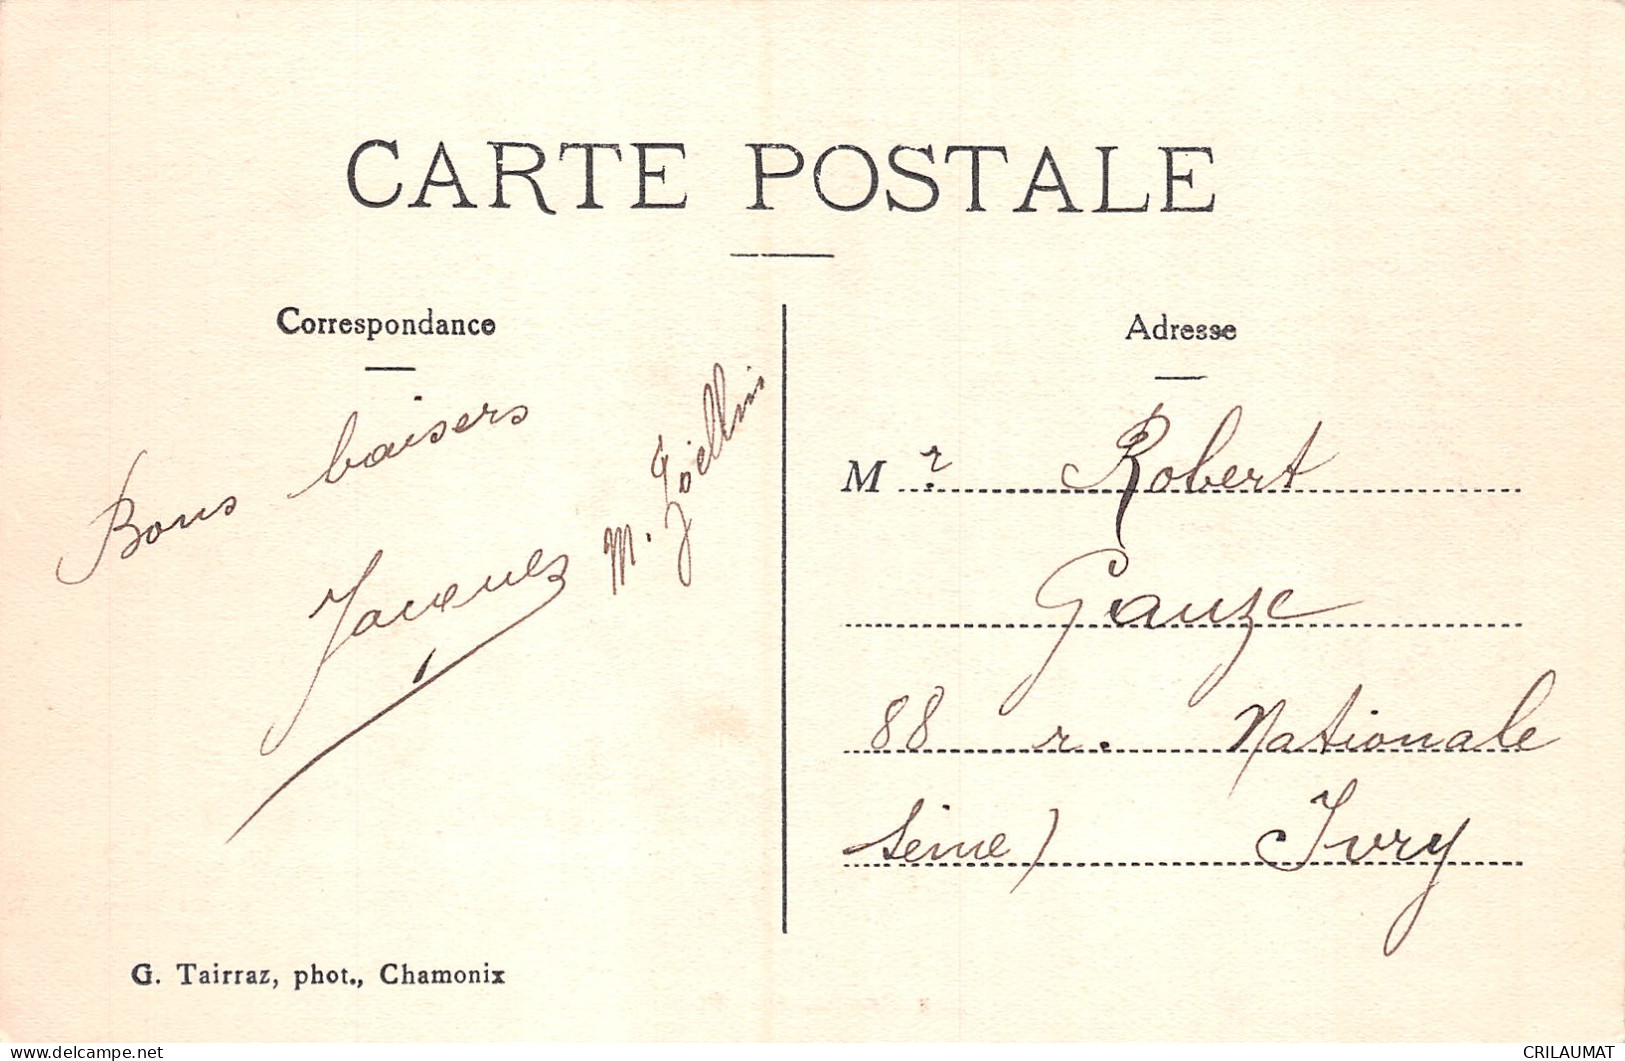 CARTE POSTALE
Correspondance
Bons baisers
Jacques
M. Zoëllin
G. Tairraz, phot., Chamonix
Adresse
Mr Robert
Gauze
88 r. Nationale
Seine) Ivry
delcampe.net
CRILAUMAT